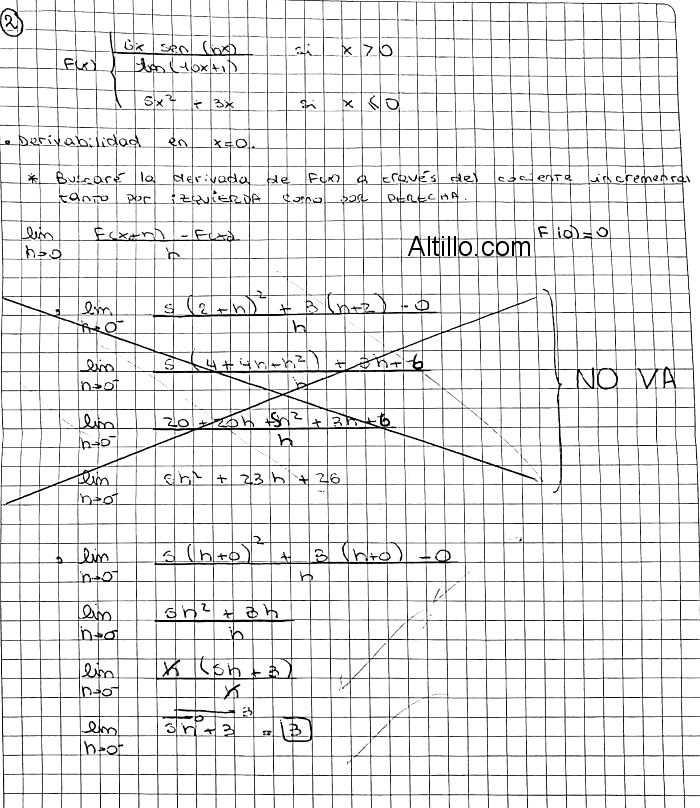 2
F(x) { 6x sen (hx) / ln(10x+1) si x > 0
5x² + 3x si x ≤ 0
• Derivabilidad en x=0.
* Buscaré la derivada de F(x) a través del cociente incremental
tanto por izquierda como por DERECHA.
lim h→0 F(x+h) - F(x) / h F(0)=0
Altillo.com
, lim h→0⁻ 5(2+h)² + 3(h+2) - 0 / h
lim h→0⁻ 5(4+4h+h²) + 3h+6 / h
NO VA
lim h→0⁻ 20 + 20h + 5h² + 3h + 6 / h
lim h→0⁻ 5h² + 23h + 26
, lim h→0⁻ 5(h+0)² + 3(h+0) - 0 / h
lim h→0⁻ 5h² + 3h / h
lim h→0⁻ h(5h+3) / h
lim h→0⁻ 5h + 3 = 3